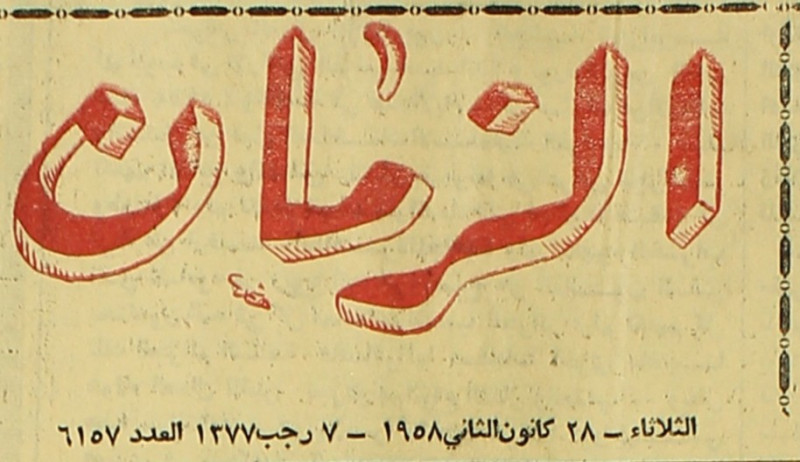 الزمان
الثلاثاء – ٢٨ كانون الثاني ١٩٥٨ – ٧ رجب ١٣٧٧ العدد ٦١٥٧